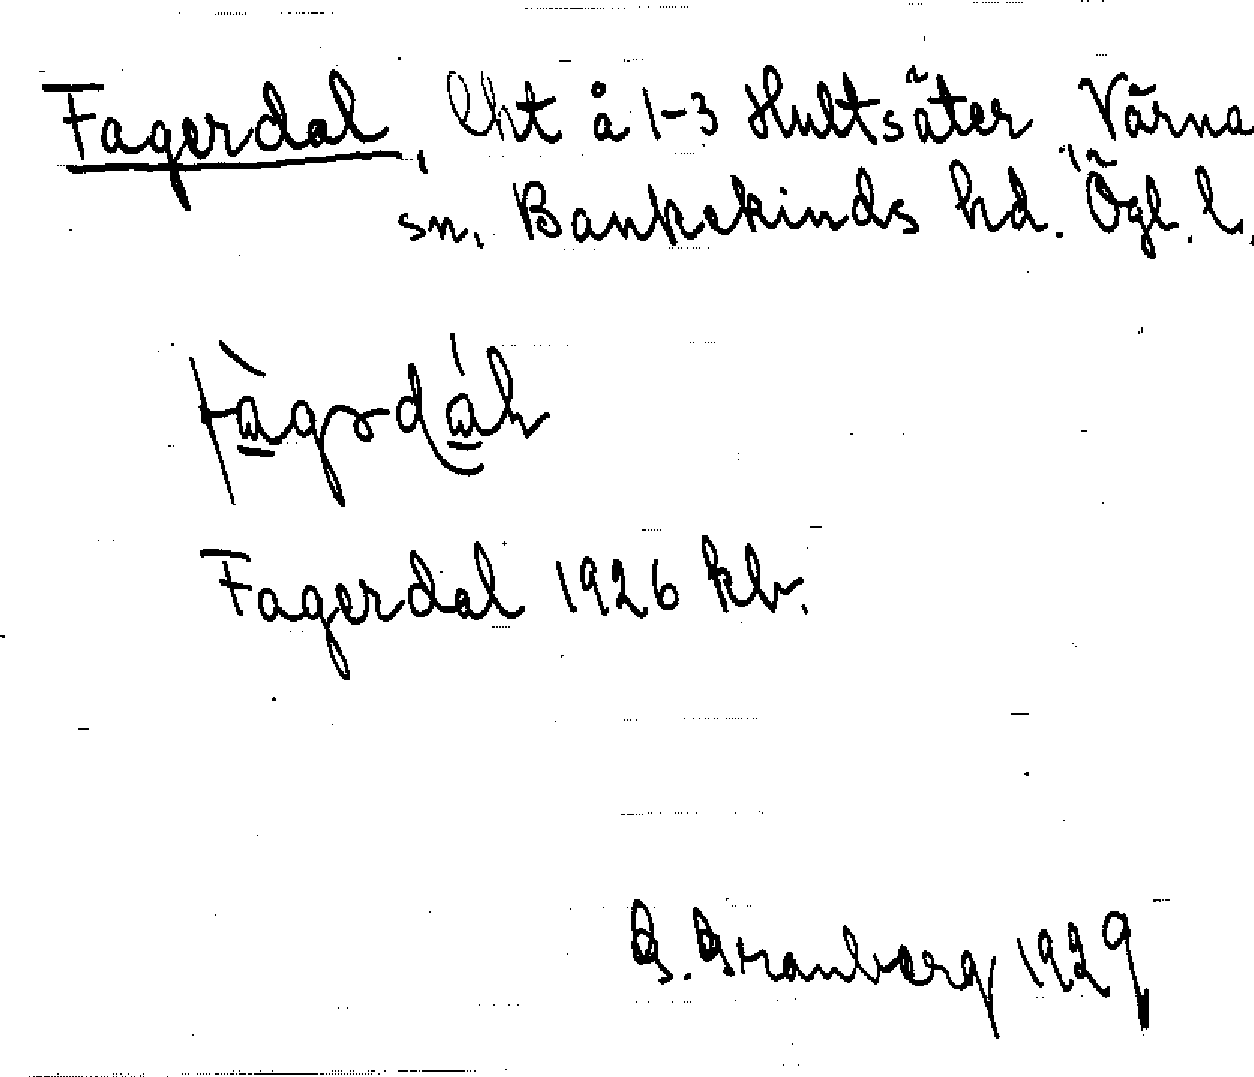 Fagerdal, lht å 1-3 Hultsäter Värna
sn, Bankekinds hd. Ögl. l.
Fagerdal 1926 kb.
G. Granberg 1929